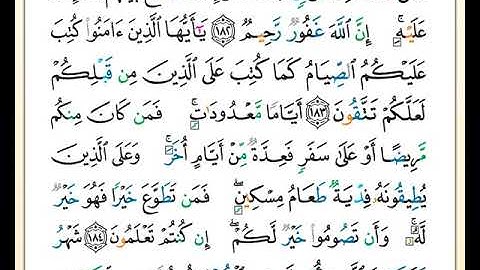 عَلَيْهِ ۚ إِنَّ اللَّهَ غَفُورٌ رَّحِيمٌ ١٨٢ يَا أَيُّهَا الَّذِينَ آمَنُوا كُتِبَ
عَلَيْكُمُ الصِّيَامُ كَمَا كُتِبَ عَلَى الَّذِينَ مِن قَبْلِكُمْ
لَعَلَّكُمْ تَتَّقُونَ ١٨٣ أَيَّامًا مَّعْدُودَاتٍ ۚ فَمَن كَانَ مِنكُم
مَّرِيضًا أَوْ عَلَىٰ سَفَرٍ فَعِدَّةٌ مِّنْ أَيَّامٍ أُخَرَ ۚ وَعَلَى الَّذِينَ
يُطِيقُونَهُ فِدْيَةٌ طَعَامُ مِسْكِينٍ ۖ فَمَن تَطَوَّعَ خَيْرًا فَهُوَ خَيْرٌ
لَّهُ ۚ وَأَن تَصُومُوا خَيْرٌ لَّكُمْ ۖ إِن كُنتُمْ تَعْلَمُونَ ١٨٤ شَهْرُ